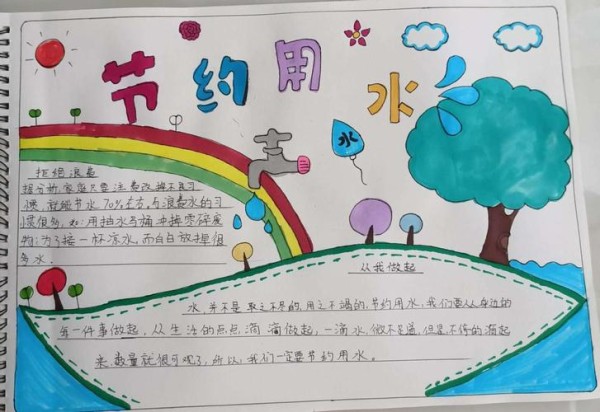 节约用水
水
拒绝浪费
据分析,家庭只要注意改掉不良习
惯,就能节水70%左右,与浪费水的习
惯很多,如:用抽水马桶冲掉零碎废
物;为了接一杯凉水,而白白放掉很
多水。
从我做起
水,并不是取之不尽的,用之不竭的,节约用水,我们要从身边的
每一件事做起,从生活的点点滴滴做起,一滴水,微不足道,但是不停的滴起
来,数量就很可观了,所以,我们一定要节约用水。